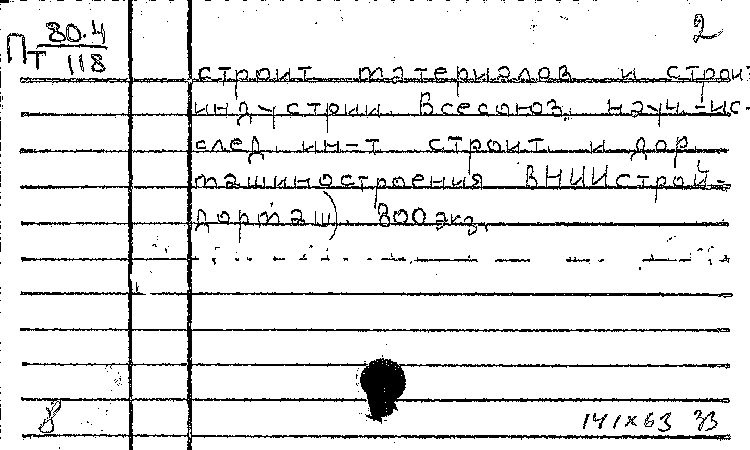 2
Пт 80.4
118
строит материалов и строит
индустрии. Всесоюз. науч.-ис-
след. ин-т строит. и дор.
машиностроения ВНИИстрой-
дормаш). 800 экз.
8
141х63 33